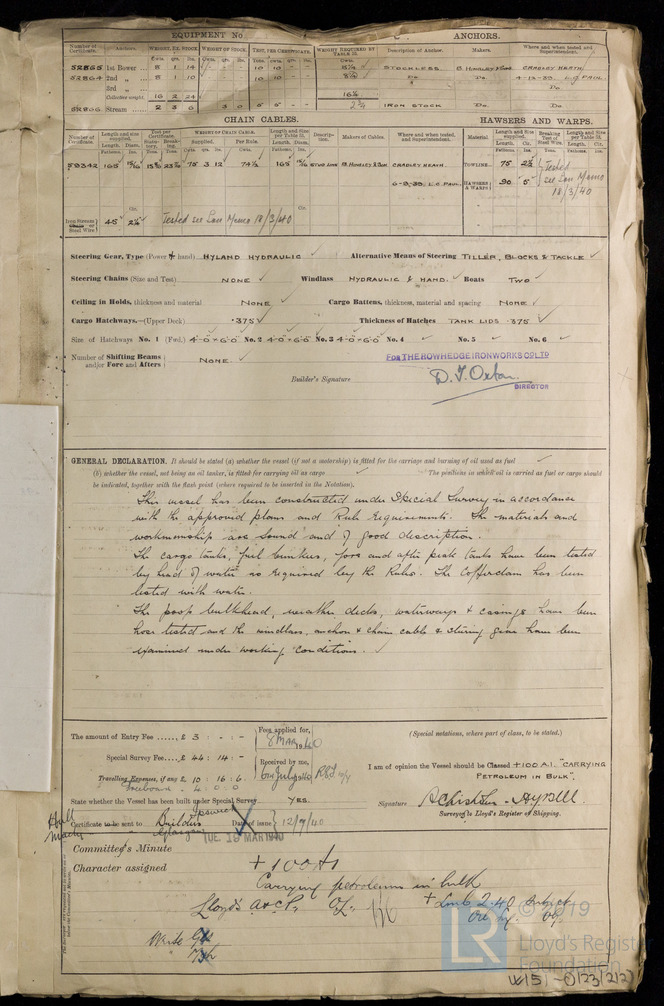 EQUIPMENT No
ANCHORS.
Number of Certificate.
Anchors.
WEIGHT, EX. STOCK.
WEIGHT OF STOCK.
TEST, PER CERTIFICATE.
WEIGHT REQUIRED BY TABLE 31.
Description of Anchor.
Makers.
Where and when tested and Superintendent.
52865 1st Bower 8 1 14 10 10 - - 8¼ STOCKLESS CRADLEY HEATH
52864 2nd „ 8 1 10 10 10 - - 8¼ Do Do. 4-12-39 L.G PAUL.
3rd „ Do
Collective weight. 16 2 24 16½
52866 Stream 2 3 6 3 0 2¾ IRON STOCK Do. Do
CHAIN CABLES.
HAWSERS AND WARPS.
Number of Certificate.
Length and size supplied.
Test per Certificate.
WEIGHT OF CHAIN CABLE.
Supplied.
Per Rule.
Length and size per Table 31.
Description.
Makers of Cables.
Where and when tested, and Superintendent.
Material
Length and size supplied.
Breaking Test of Steel Wire.
Length and size per Table 31.
59342 165 15/16 75 3 12 74¼ 165 15/16 STUD LINK CRADLEY HEATH. TOWLINE 75 2½ Tested
6-9-39. L.G. PAUL. HAWSERS & WARPS 90 5 see Lon Memo
18/3/40
Iron Stream Chain or Steel Wire 45 2¼ Tested see Lon Memo 18/3/40
Steering Gear, Type (Power & hand) HYLAND HYDRAULIC Alternative Means of Steering TILLER, BLOCKS & TACKLE
Steering Chains (Size and Test) NONE Windlass HYDRAULIC & HAND. Boats TWO
Ceiling in Holds, thickness and material NONE Cargo Battens, thickness, material and spacing NONE.
Cargo Hatchways.—(Upper Deck) ·375 Thickness of Hatches TANK LIDS ·375
Size of Hatchways No. 1 (Fwd.) 4-0 × 6-0 No. 2 4-0 × 6-0 No. 3 4-0 × 6-0 No. 4 No. 5 No. 6
Number of Shifting Beams and/or Fore and Afters NONE.
FOR THE ROWHEDGE IRONWORKS CO. LTD
Builder's Signature
DIRECTOR
GENERAL DECLARATION. It should be stated (a) whether the vessel (if not a motorship) is fitted for the carriage and burning of oil used as fuel
(b) whether the vessel, not being an oil tanker, is fitted for carrying oil as cargo The positions in which oil is carried as fuel or cargo should
be indicated, together with the flash point (where required to be inserted in the Notation).
This vessel has been constructed under Special Survey in accordance
with the approved plans and Rule requirements. The materials and
workmanship are sound and of good description.
The cargo tanks, fuel bunkers, fore and afte peak tanks have been tested
by head of water as required by the Rules. The Cofferdam has been
tested with water.
The poop bulkhead, weather decks, waterways & casings have been
hose tested and the windlass, anchor & chain cable & steering gear have been
examined under working conditions.
The amount of Entry Fee £ 3 : - : -
Fees applied for,
8 MAR 1940
(Special notations, where part of class, to be stated.)
Special Survey Fee £ 44 : 14 : -
Received by me,
I am of opinion the Vessel should be Classed +100 A.1. "CARRYING
PETROLEUM IN BULK".
Travelling Expenses, if any £ 10 : 16 : 6.
Freeboard 4 : 0 : 0
State whether the Vessel has been built under Special Survey YES.
Signature
Surveyor to Lloyd's Register of Shipping.
Hull Ipswich
Certificate to be sent to Builders Date of issue 12/7/40
Mach Glasgow TUE. 19 MAR 1940
Committee's Minute
Character assigned +100A1
Carrying petroleum in bulk
Lloyd's A & CP. + LMC 2.40 subject
Oil Eng.
Write
© 2019
LR
Lloyd's Register
Foundation